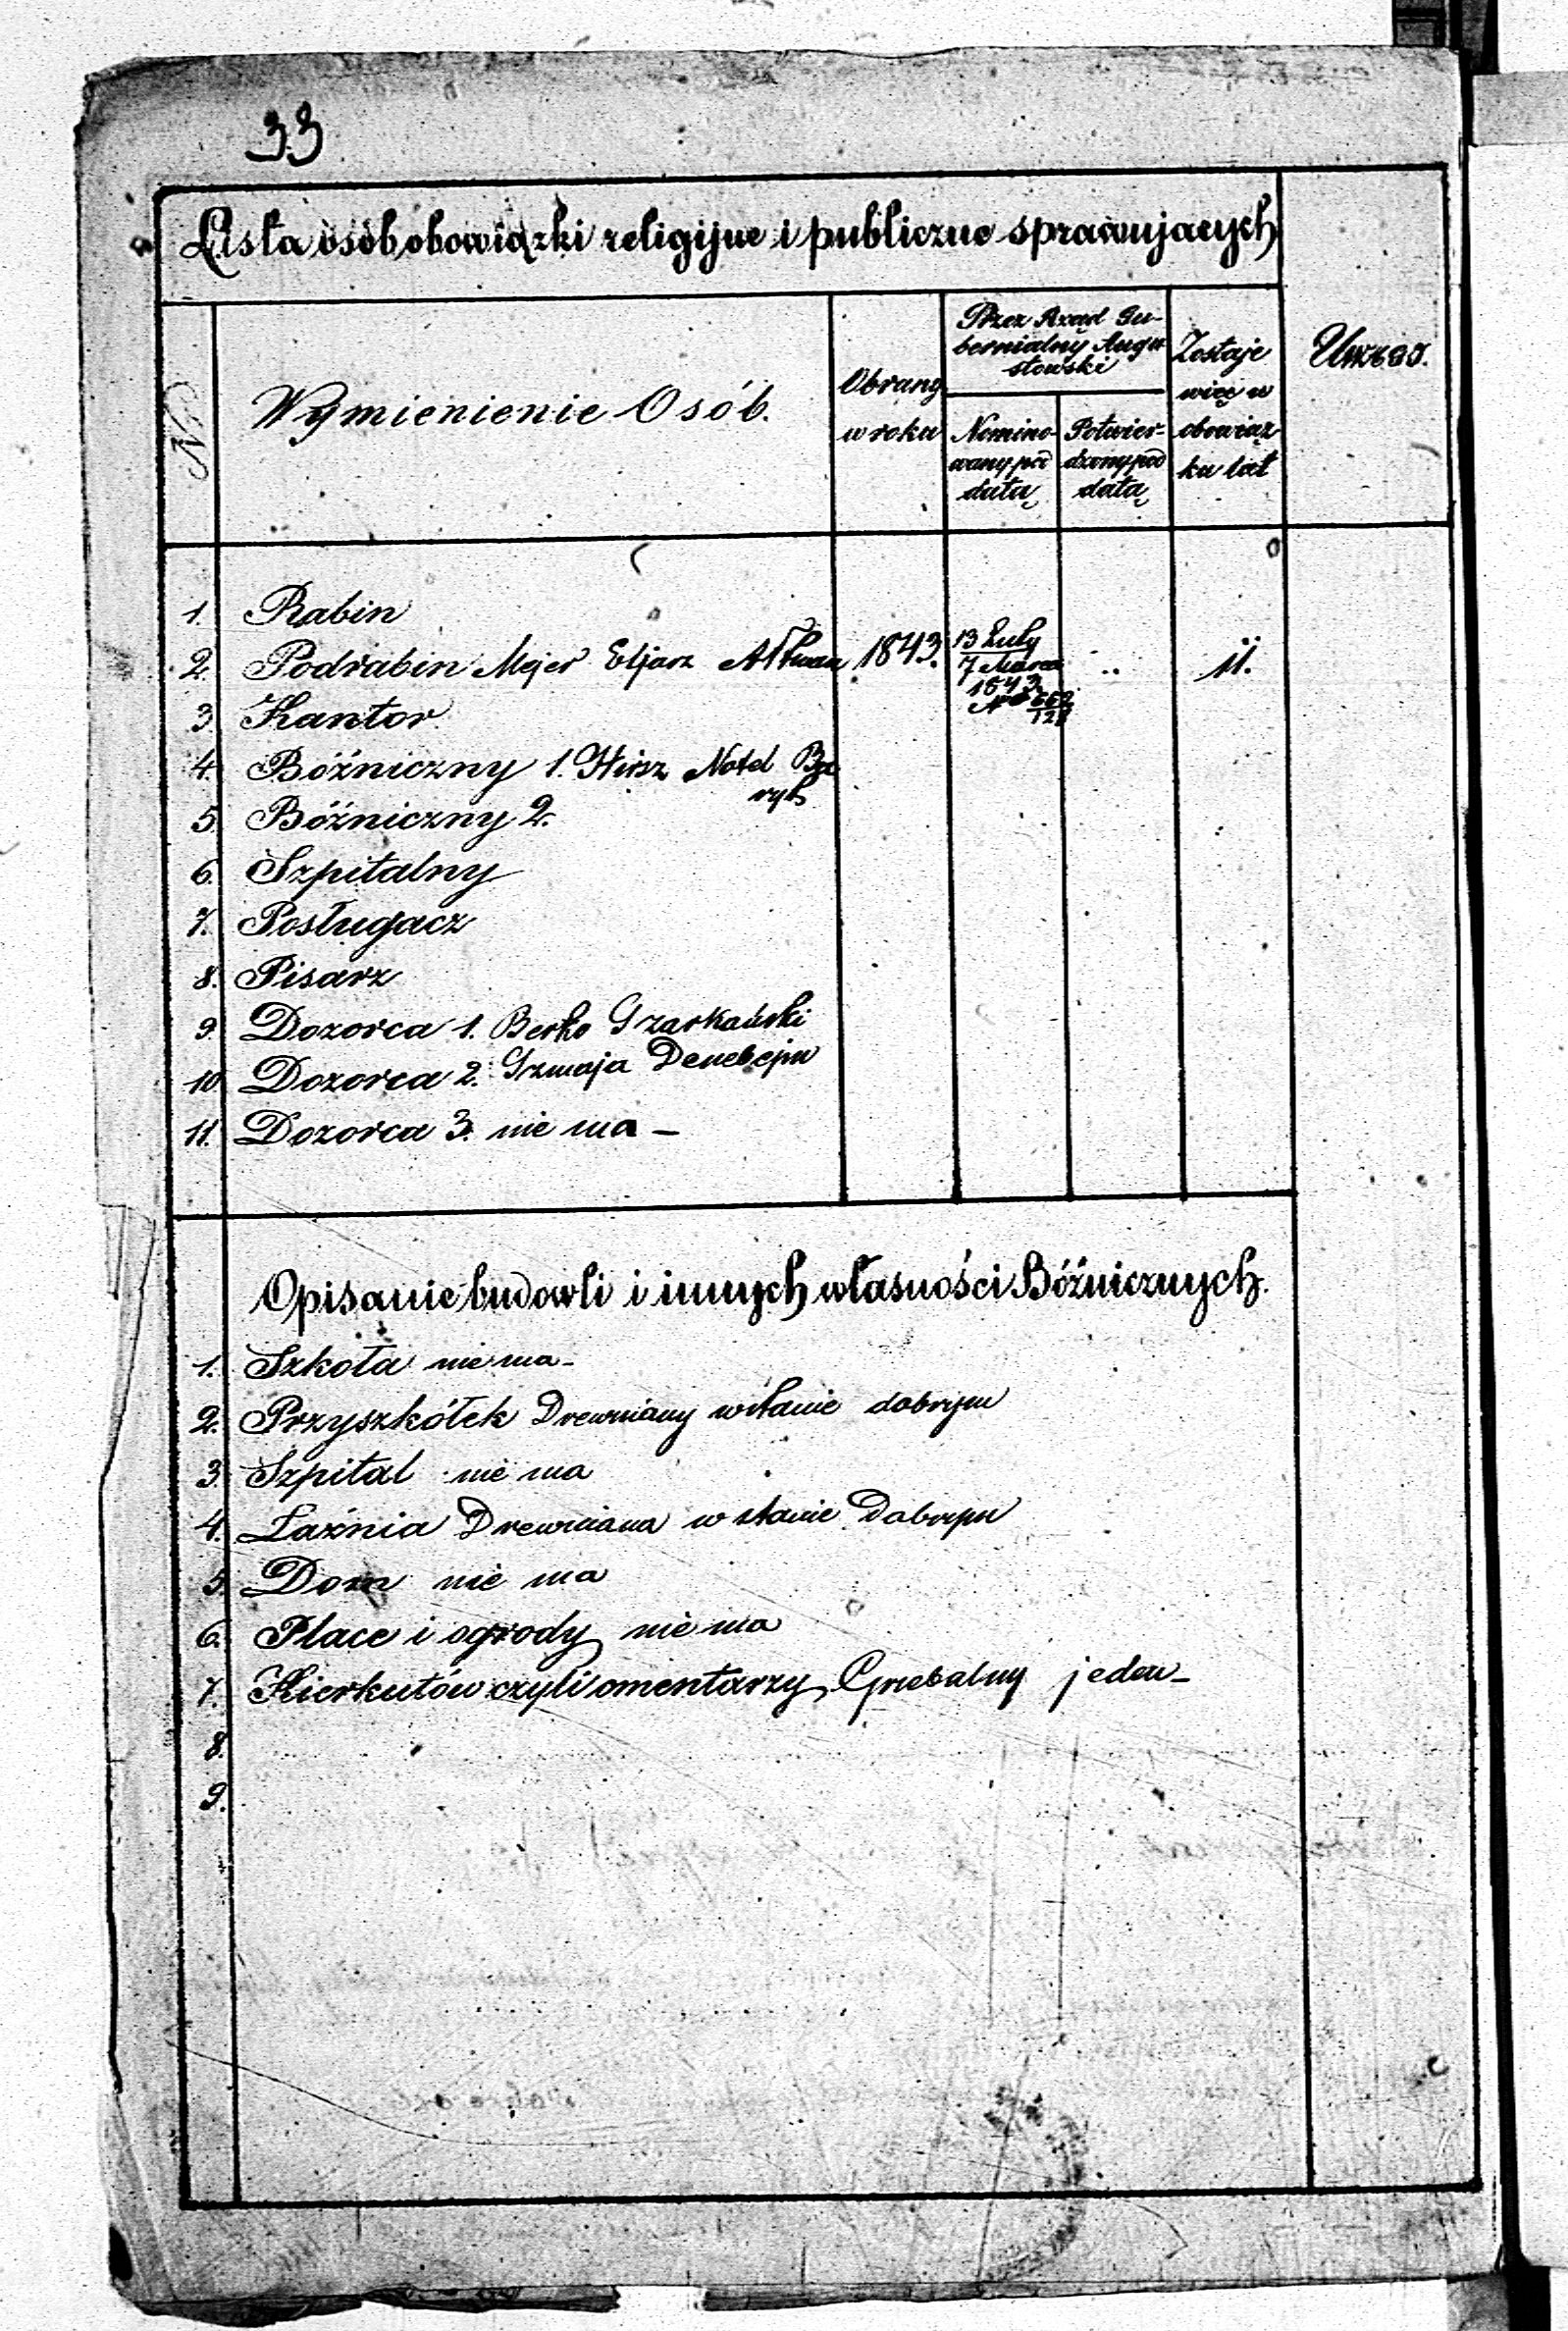 33
Lista osób obowiązki religijne i publiczne sprawujących
No
Wymienienie Osób.
Obrany
w roku
Przez Rząd Gu-
bernialny Augu-
stowski
Nomino-
wany pod
datą
Potwier-
dzony pod
datą
Zostaje
więc w
obowiąz-
ku lat
1. Rabin
2. Podrabin Mejer Eljasz 1843. 13 Luty .. 11.
7 Marca
1843
No
3. Kantor
4. Bóźniczny 1. Hirsz Notel Ba
ryl
5. Bóźniczny 2.
6. Szpitalny
7. Posługacz
8. Pisarz
9. Dozorca 1. Berko
10. Dozorca 2.
11. Dozorca 3. nie ma –
Opisanie budowli i innych własności Bóźnicznych.
1. Szkoła nie ma –
2. Przyszkółek Drewniany w stanie dobrym
3. Szpital nie ma
4. Łaźnia Drewniana w stanie Dobrym
5. Dom nie ma
6. Place i ogrody nie ma
7. Kierkutów czyli smentarzy Grzebalny jeden –
8.
9.